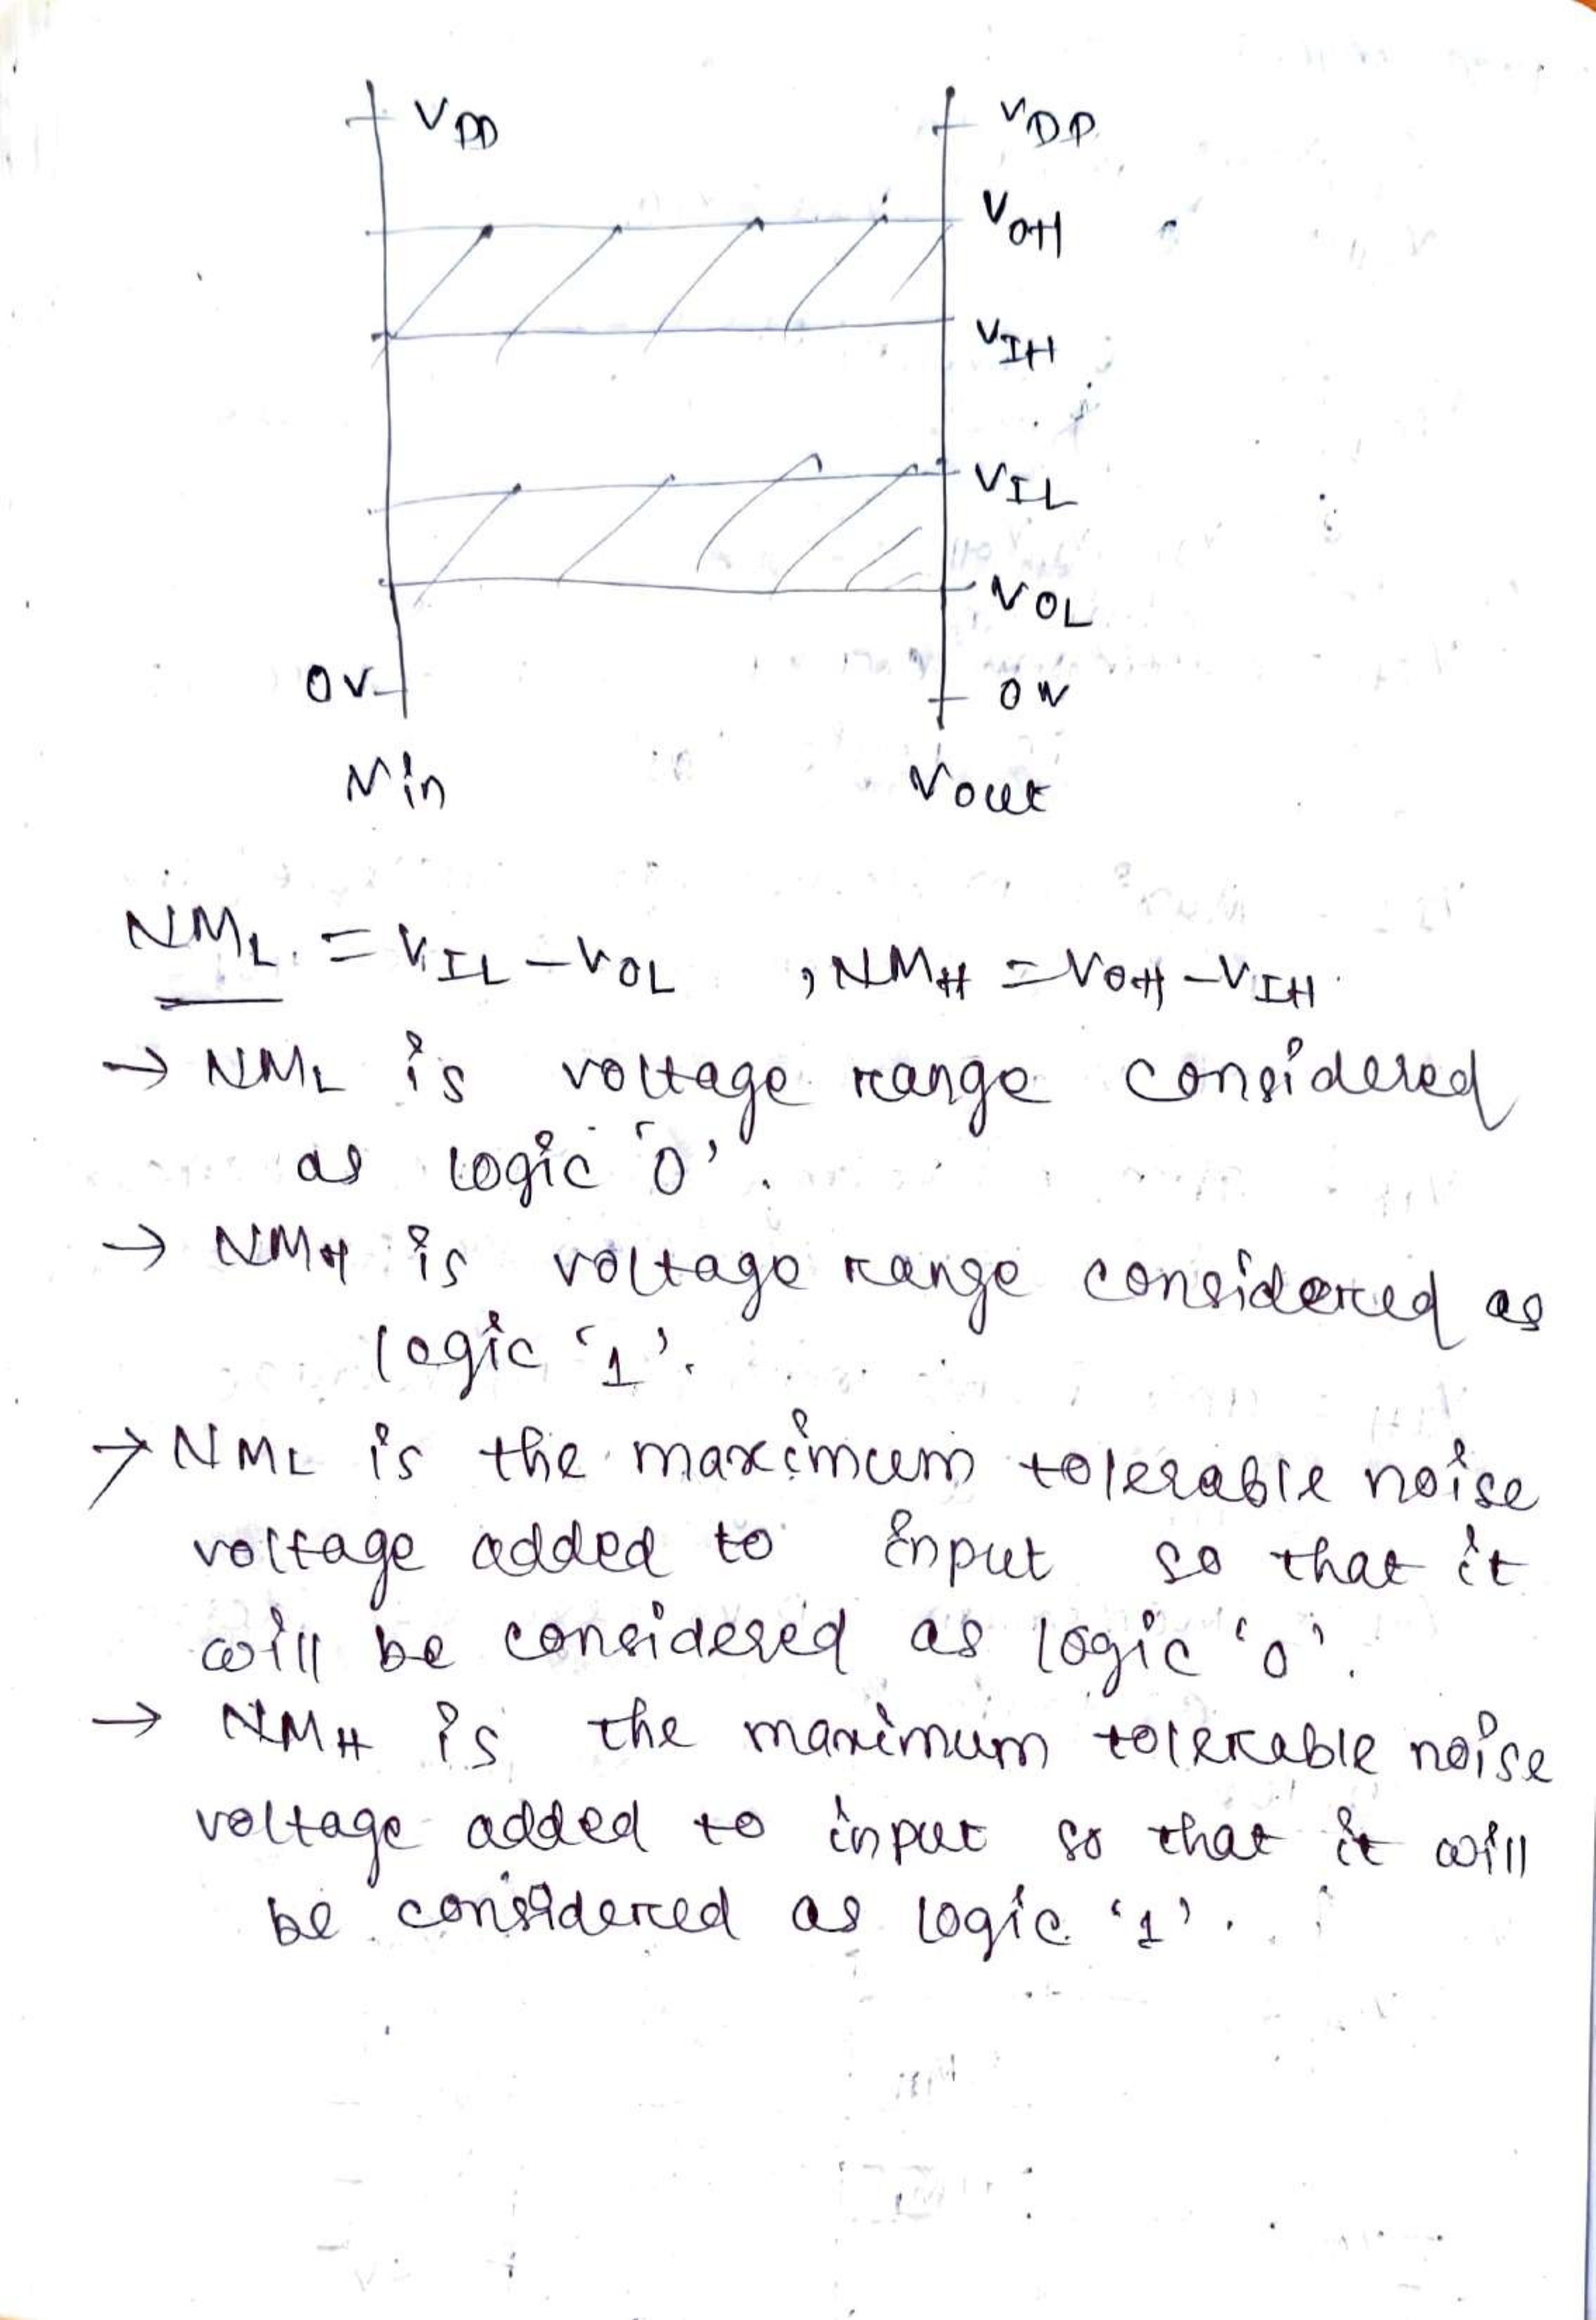 VDD VDD
VOH
VIH
VIL
VOL
0V 0V
Vin Vout
NML = VIL - VOL , NMH = VOH - VIH
→ NML is voltage range considered
as logic '0'.
→ NMH is voltage range considered as
logic '1'.
→ NML is the maximum tolerable noise
voltage added to input so that it
will be considered as logic '0'.
→ NMH is the maximum tolerable noise
voltage added to input so that it will
be considered as logic '1'.